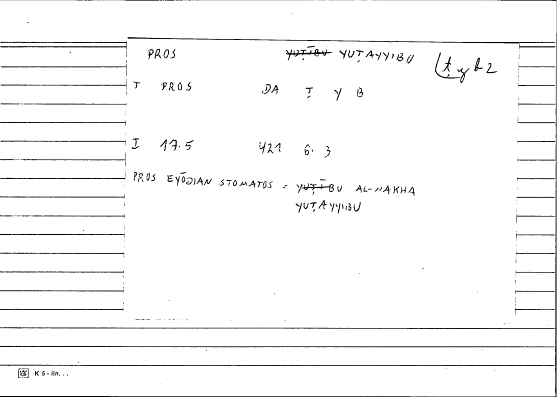 PROS YUṬĪBU YUṬAYYIBU ṭyb2
T PROS DA Ṭ Y B
I 17.5 421 6.3
PROS EYŌDIAN STOMATOS = YUṬĪBU AL-NAKHA
YUṬAYYIBU
K 5 - lin...